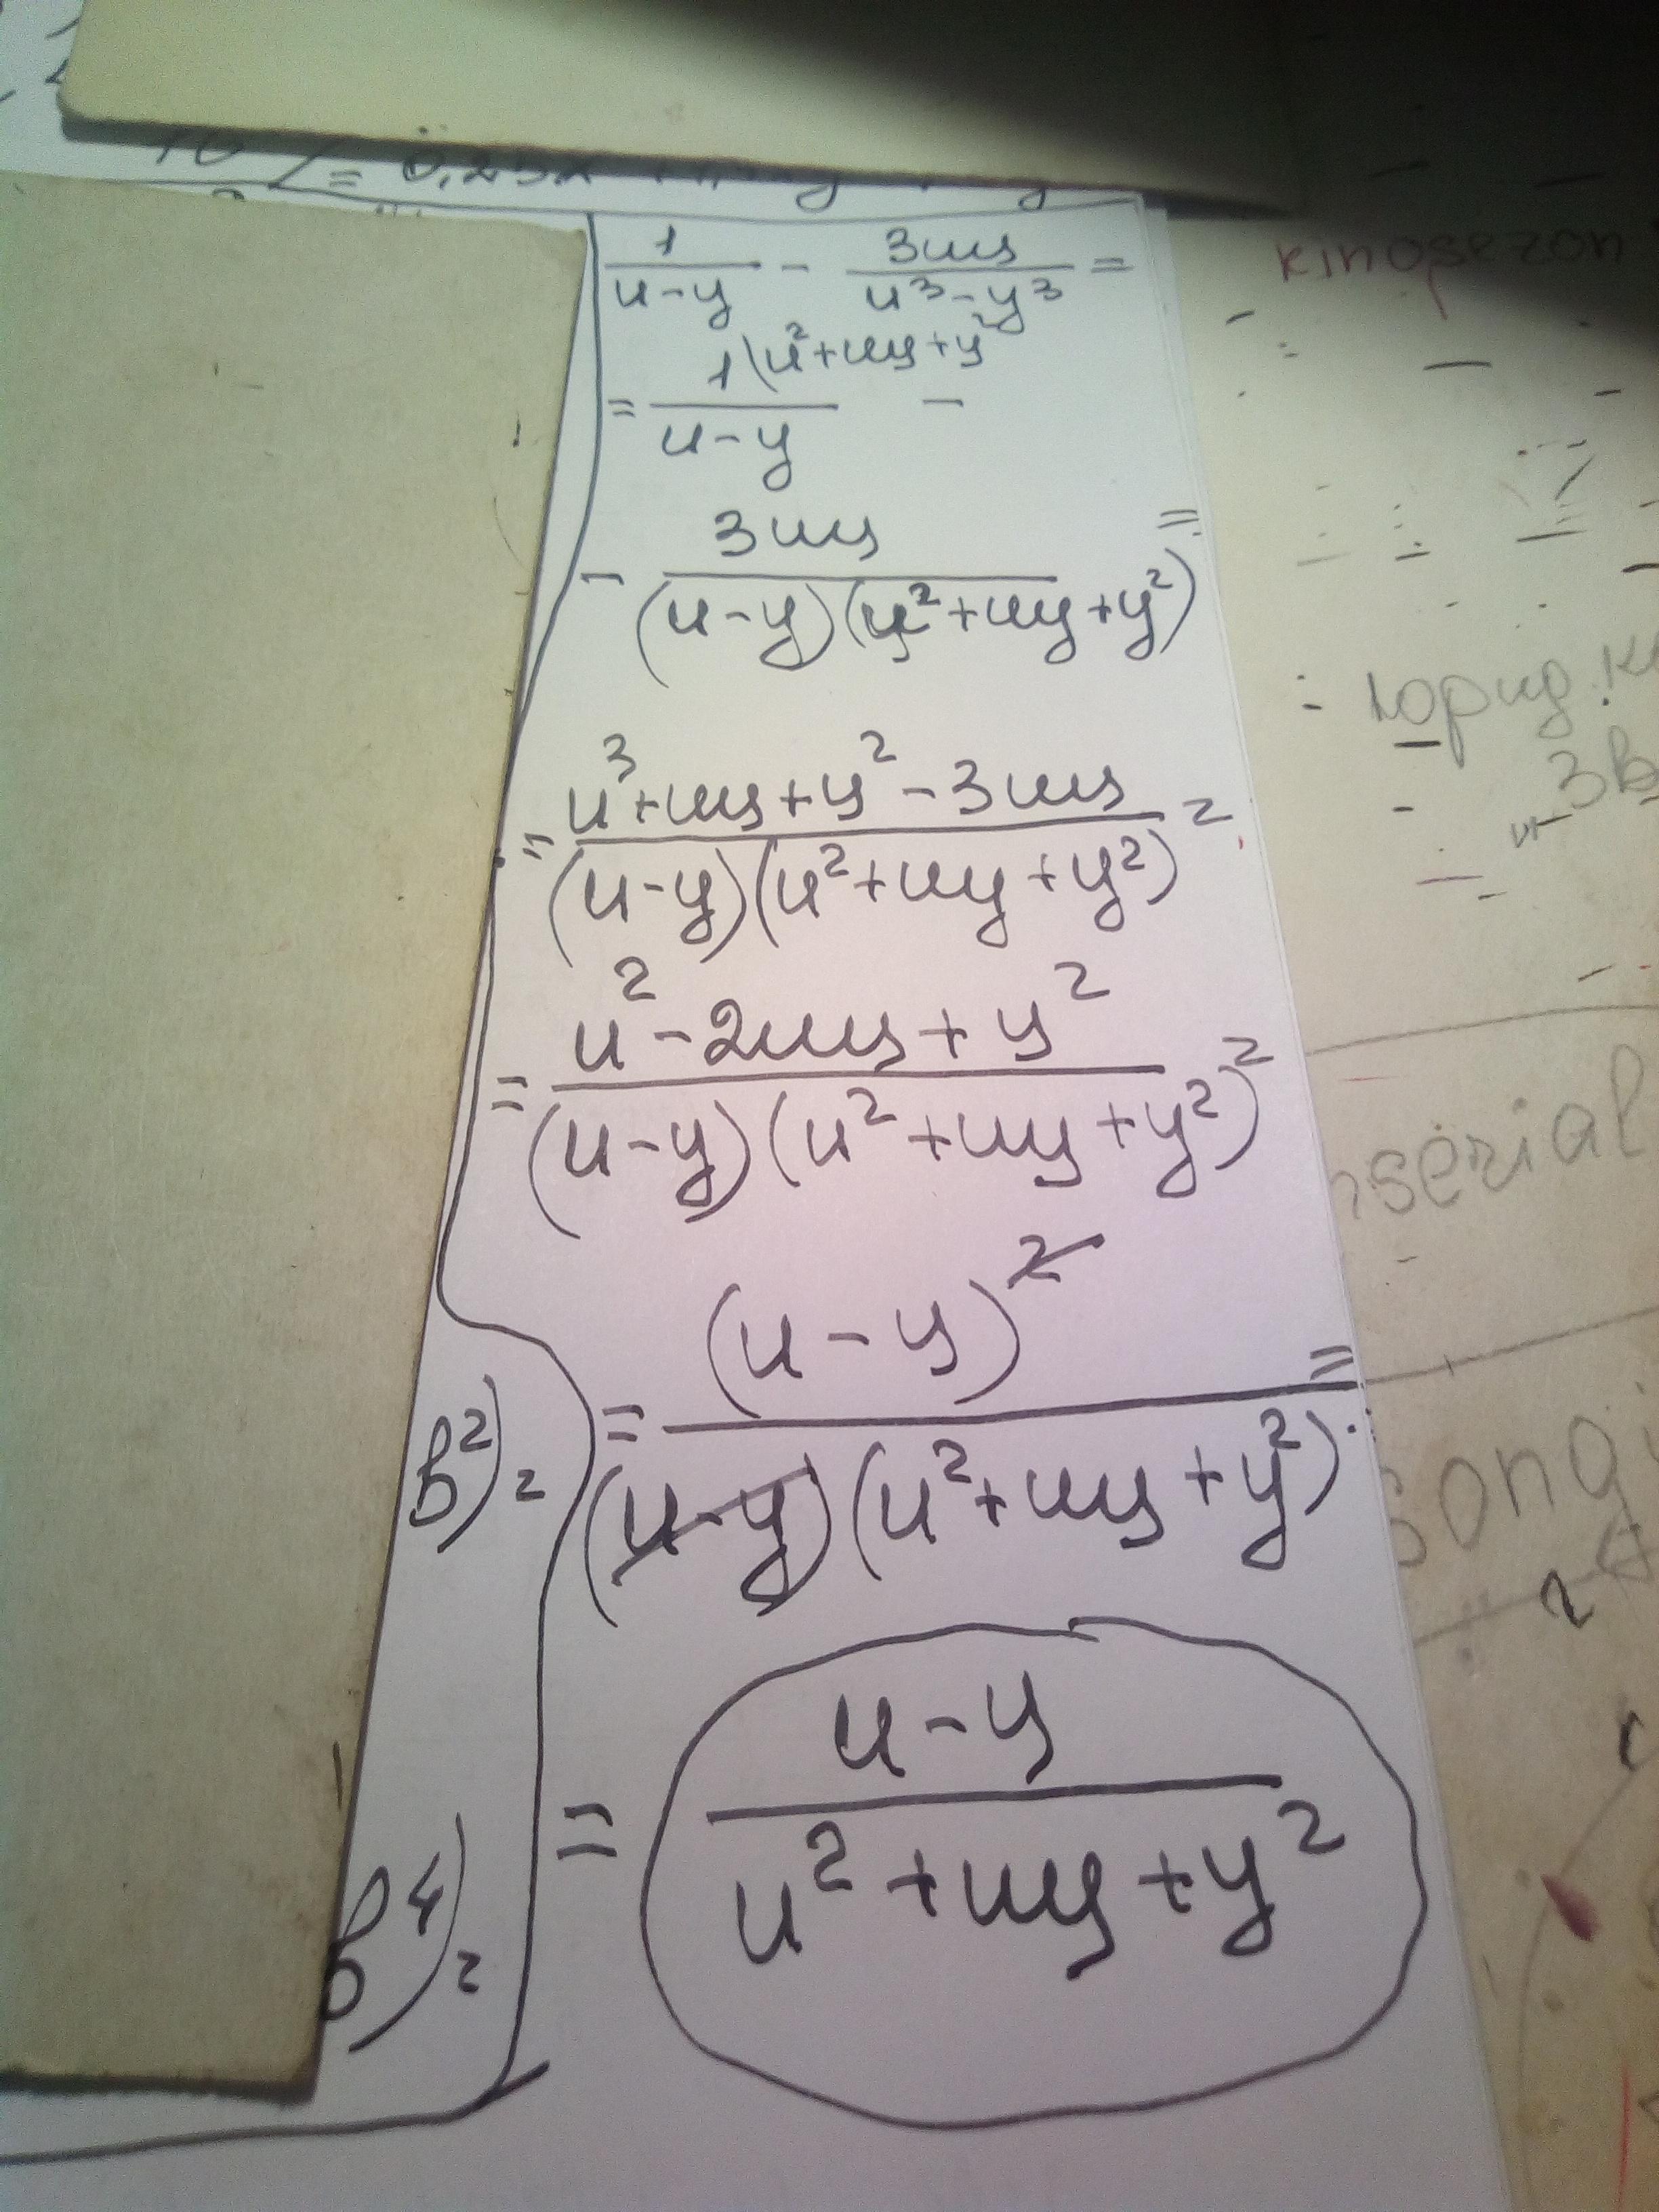 1/(u-y) - 3uy/(u³-y³) =
= 1(u²+uy+y²/(u-y) -
- 3uy/((u-y)(u²+uy+y²)) =
= (u³+uy+y²-3uy)/((u-y)(u²+uy+y²)) =
= (u²-2uy+y²)/((u-y)(u²+uy+y²)) =
= (u-y)²/((u-y)(u²+uy+y²)) =
= (u-y)/(u²+uy+y²)
b²) =
b⁴) =
kinosezon
serial
song